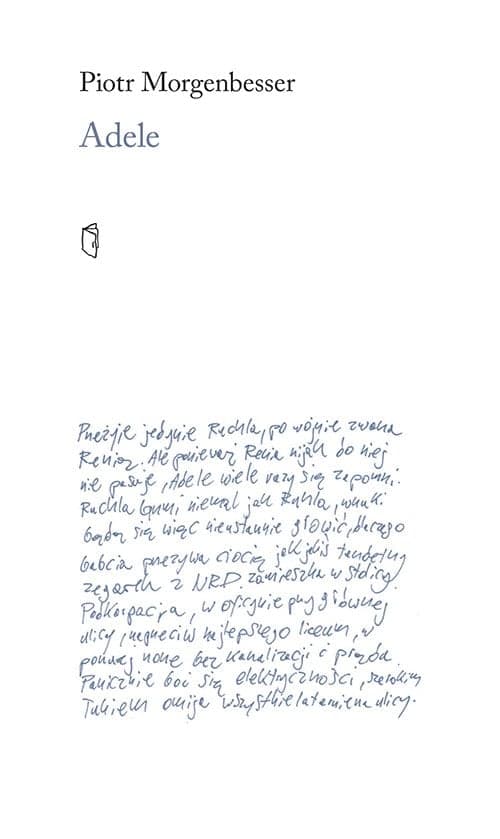 Piotr Morgenbesser
Adele
Przeżyje jedynie Ruchla, po wojnie zwana
Renią. Ale ponieważ Renia nijak do niej
nie pasuje, Adele wiele razy się zapomni.
Ruchla brzmi niemal jak Ruhla, wnuki
będą się więc nieustannie głowić, dlaczego
babcia przezywa ciocię jak jakiś tandetny
zegarek z NRD. Zamieszka w stolicy
Podkarpacia, w oficynie przy głównej
ulicy, naprzeciw najlepszego liceum, w
norze bez kanalizacji i prądu.
Panicznie boi się elektryczności, szerokim
łukiem omija wszystkie latarnie na ulicy.